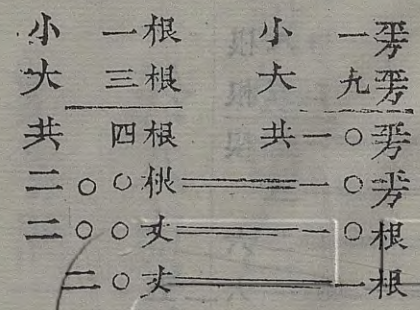 小 一根 小 一平方
大 三根 大 九平方
共 四根 共一〇平方
二〇〇根＝一〇平方
二〇〇丈＝一〇根
二〇丈＝一根